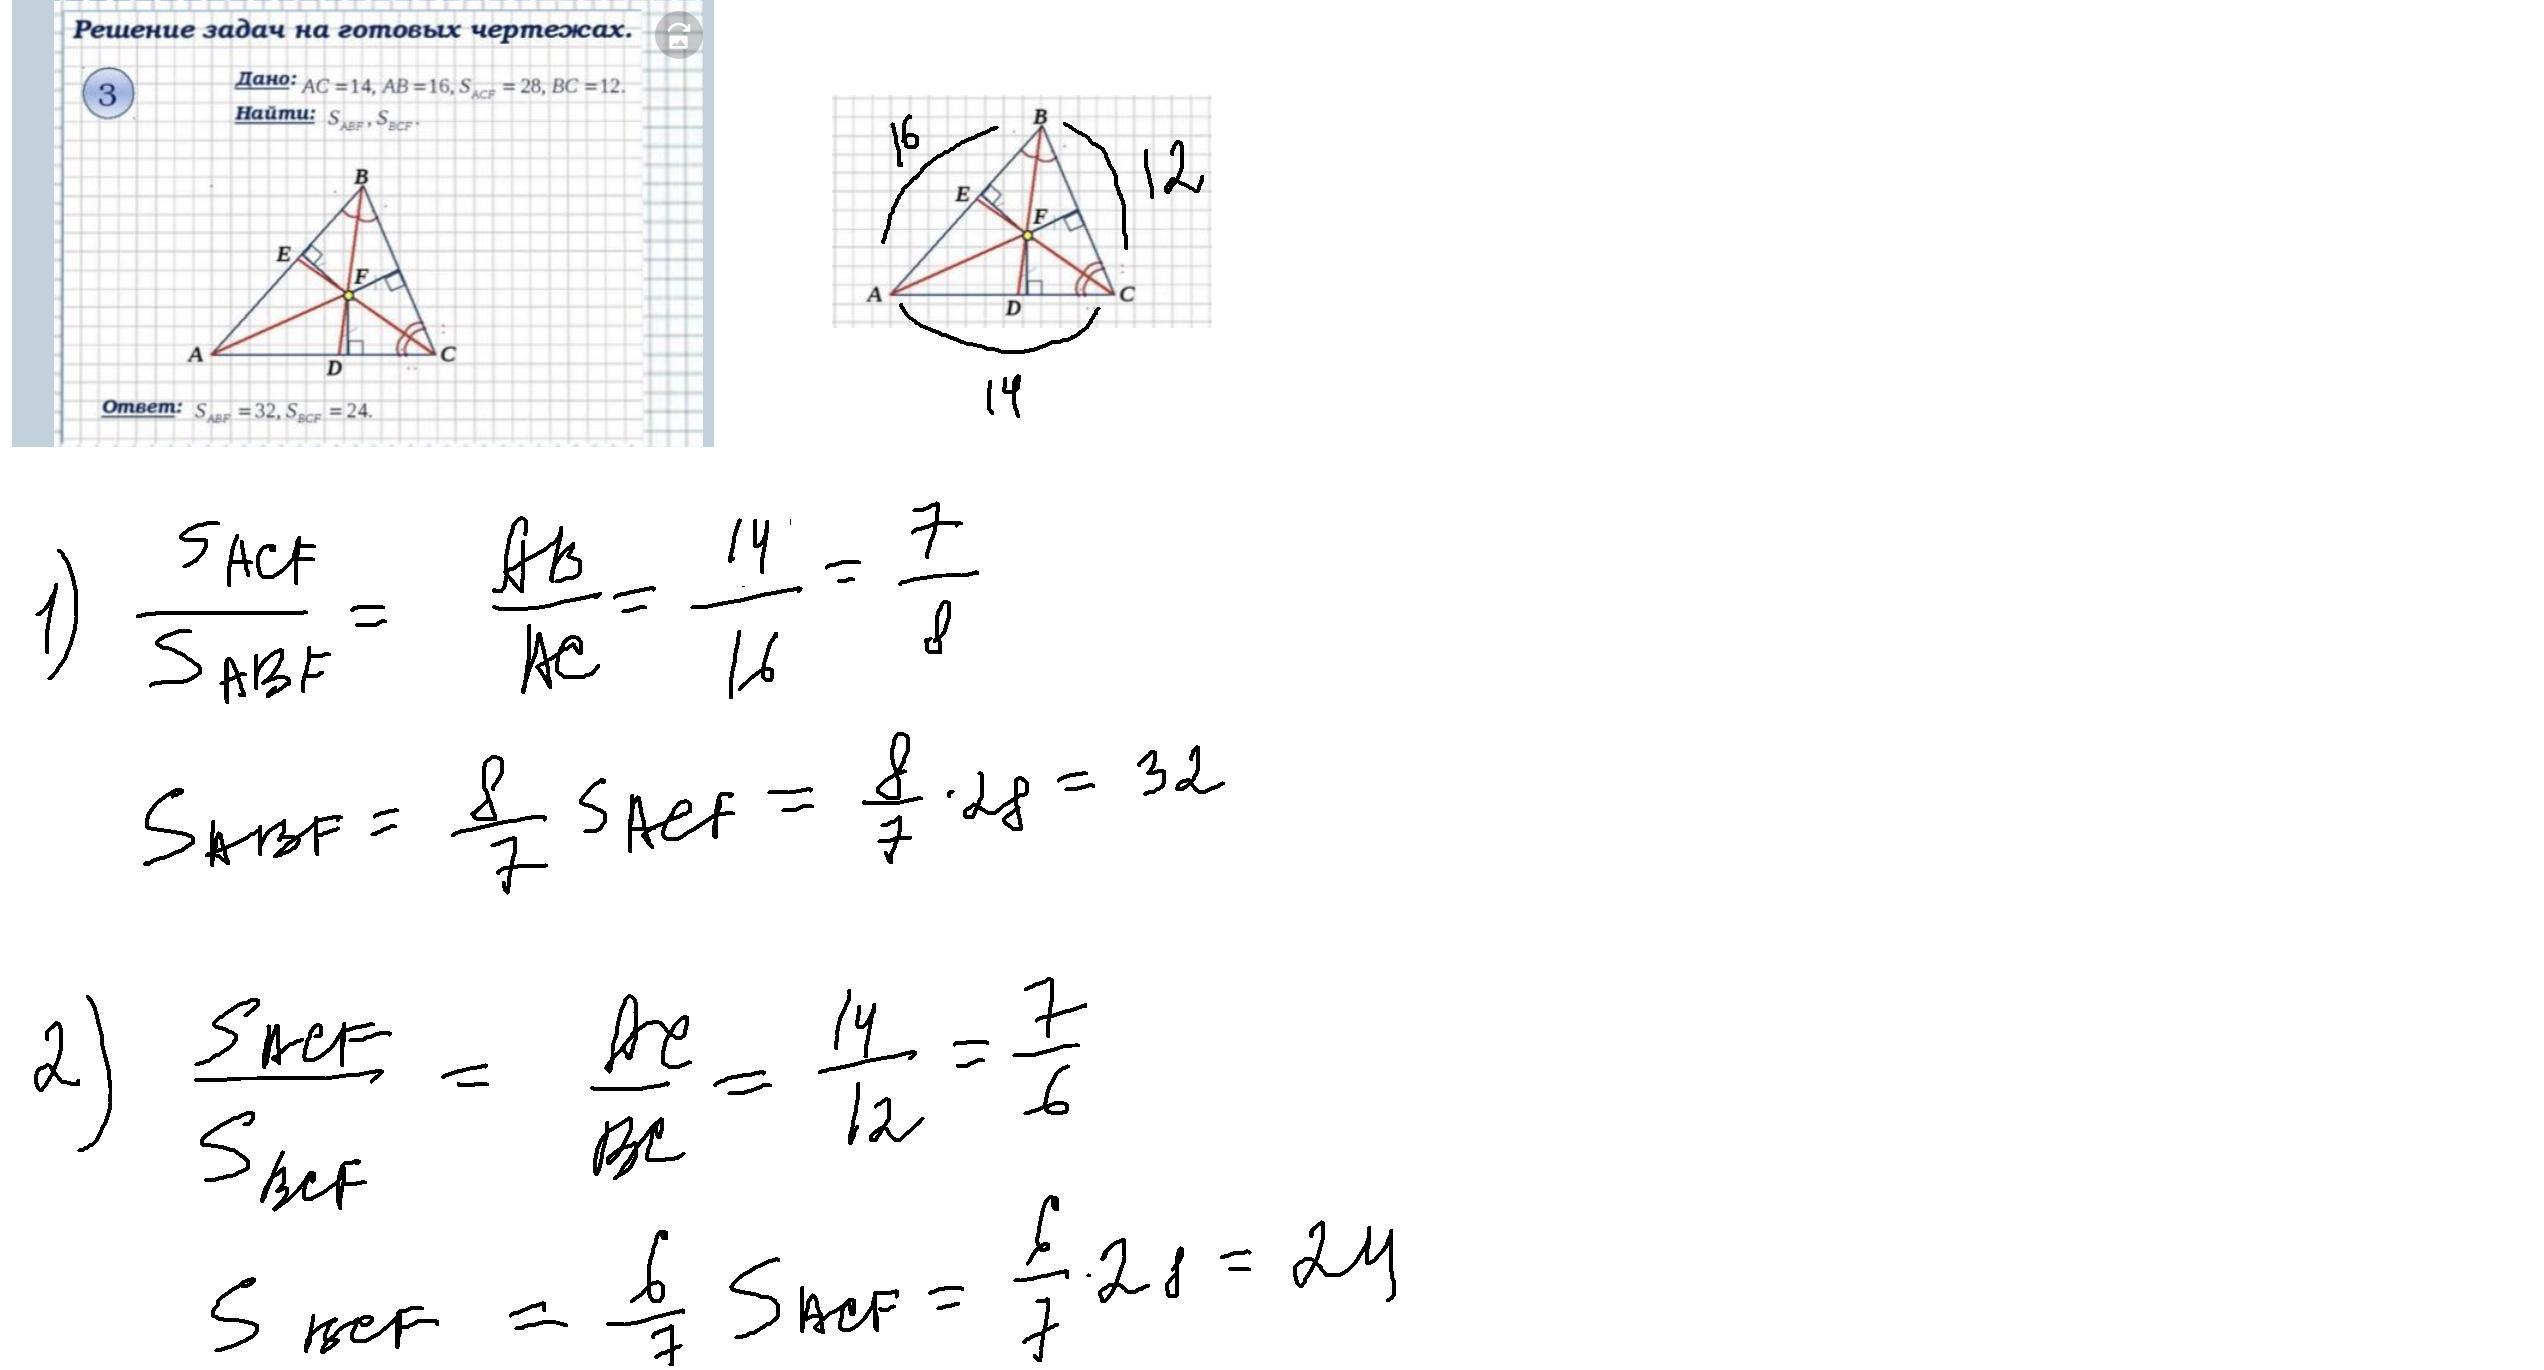 Решение задач на готовых чертежах.
3
Дано: AC = 14, AB = 16, S_ACF = 28, BC = 12.
Найти: S_ABF, S_BCF.
B
E
F
A
D
C
Ответ: S_ABF = 32, S_BCF = 24.
16
B
12
E
F
A
D
C
14
1) S_ACF / S_ABF = AB / AC = 14 / 16 = 7 / 8
S_ABF = 8/7 S_ACF = 8/7 · 28 = 32
2) S_ACF / S_BCF = AC / BC = 14 / 12 = 7 / 6
S_BCF = 6/7 S_ACF = 6/7 · 28 = 24